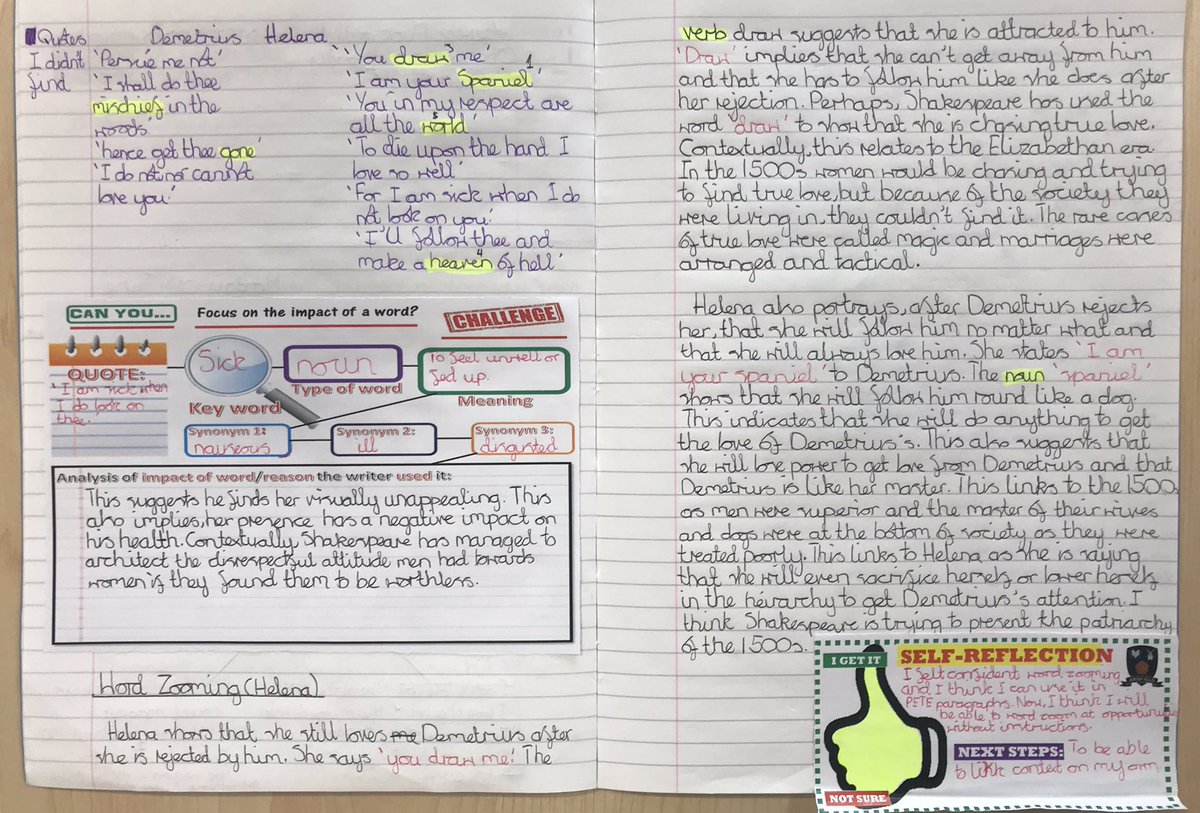 Quotes
I didn't
find
Demetrius
'Persue me not'
'I shall do thee
mischief in the
woods'
'hence get thee gone'
'I do not nor cannot
love you.'
Helena
'You draw me'
'I am your Spaniel' 1
'You in my respect are
all the world'
'To die upon the hand I
love so well'
'For I am sick when I do
not look on you.'
'I'll follow thee and
make a heaven of hell'
CAN YOU...
Focus on the impact of a word?
CHALLENGE
QUOTE:
'I am sick when
I do look on
thee.
Sick
Key word
noun
Type of word
To feel unwell or
fed up.
Meaning
Synonym 1:
nauseous
Synonym 2:
ill
Synonym 3:
disgusted
Analysis of impact of word/reason the writer used it:
This suggests he finds her visually unappealing. This
also implies, her presence has a negative impact on
his health. Contextually, Shakespeare has managed to
architect the disrespectful attitude men had towards
women if they found them to be worthless.
Word Zooming (Helena)
Helena shows that she still loves me Demetrius after
she is rejected by him. She says 'you draw me.' The
verb draw suggests that she is attracted to him.
'Draw' implies that she can't get away from him
and that she has to follow him like she does after
her rejection. Perhaps, Shakespeare has used the
word 'draw' to show that she is chasing true love.
Contextually, this relates to the Elizabethan era.
In the 1500s women would be chasing and trying
to find true love, but because of the society they
were living in, they couldn't find it. The rare cases
of true love were called magic and marriages were
arranged and tactical.
Helena also portrays, after Demetrius rejects
her, that she will follow him no matter what and
that she will always love him. She states 'I am
your spaniel' to Demetrius. The noun 'spaniel'
shows that she will follow him round like a dog.
This indicates that she will do anything to get
the love of Demetrius's. This also suggests that
she will lose power to get love from Demetrius and that
Demetrius is like her master. This links to the 1500s
as men were superior and the master of their wives
and dogs were at the bottom of society as they were
treated poorly. This links to Helena as she is saying
that she will even sacrifice herself or lower herself
in the heirarchy to get Demetrius's attention. I
think Shakespeare is trying to present the patriarchy
of the 1500s.
I GET IT
SELF-REFLECTION
I felt confident word zooming
and I think I can use it in
PETE paragraphs. Now, I think I will
be able to word zoom at opportunities
without instructions.
NEXT STEPS: To be able
to link context on my own.
NOT SURE